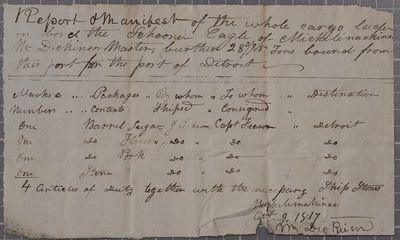 Report & Manifest of the whole cargo laden
on bord the Schooner Eagle of Michilimackinac
Wm Dickinson Master, burthen 28 Tons bound from
this port for the port of Detroit
Marks & .. Packages .. By whom .. To whom .. Destination
Numbers .. Contents Shiped Consigned
One Barrel Sugar Capt .. Detroit
One Do Flower .. Do .. Do Do
One Do Pork Do Do Do
One Do Do Do
4 Articles of Duty together with the necessary Ship Stores
Michilimackinac
Oct 9 1817
Wm Dickinson